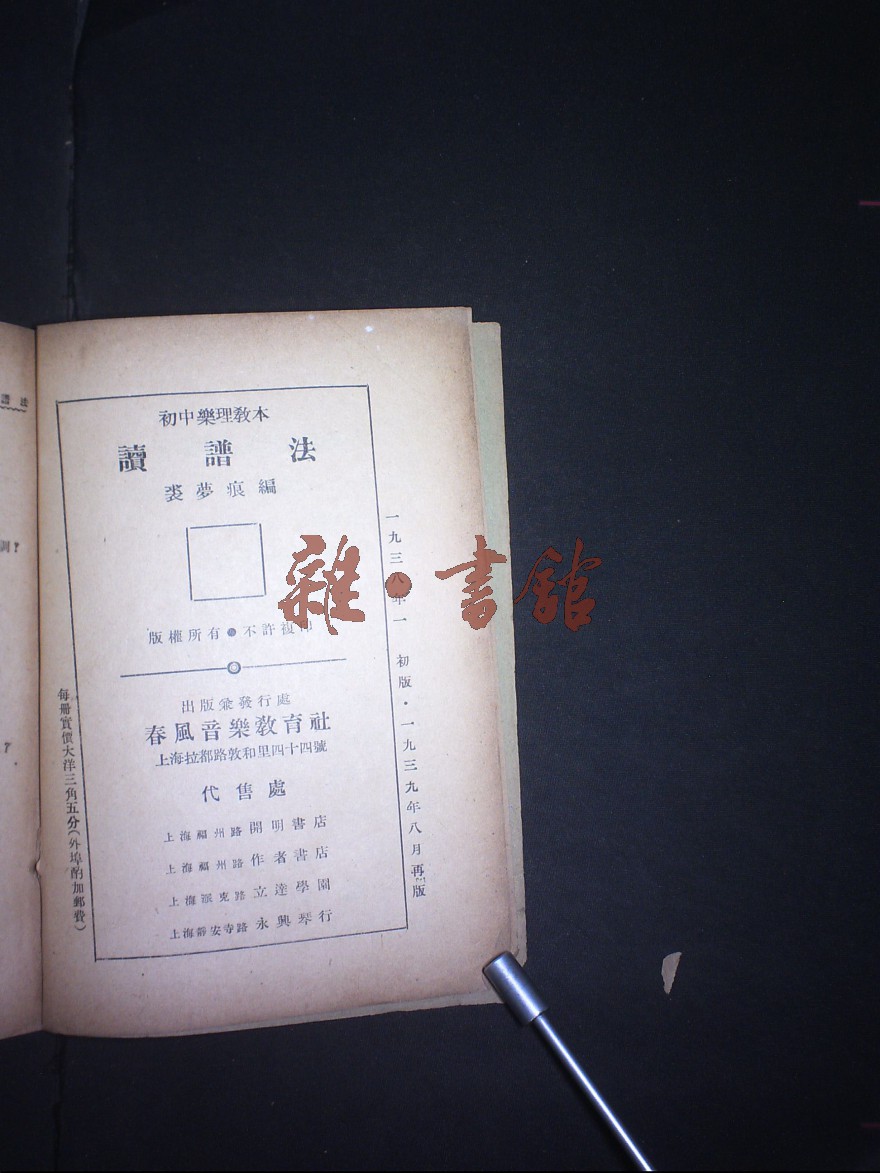 初中樂理教本
讀譜法
裘夢痕編
版權所有●不許複印
出版兼發行處
春風音樂教育社
上海拉都路敦和里四十四號
代售處
上海福州路 開明書店
上海福州路 作者書店
上海派克路 立達學園
上海靜安寺路 永興琴行
一九三八年一 初版·一九三九年八月再版
每冊實價大洋三角五分(外埠酌加郵費)
譜法
雜·書館